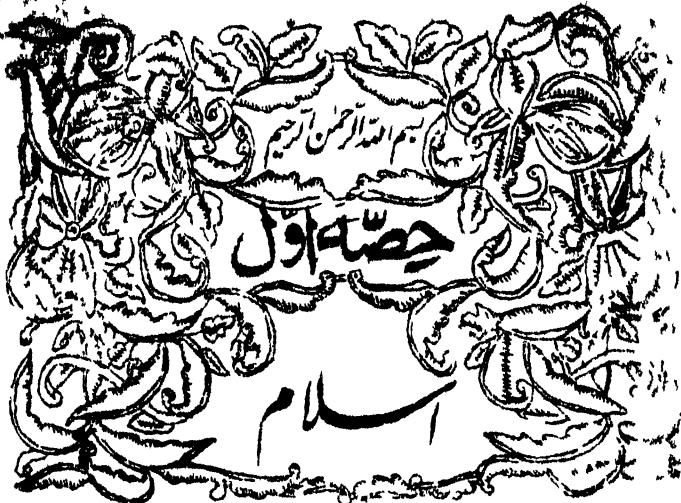 بسم اللہ الرحمٰن الرحیم
حصّہ اوّل
اسلام